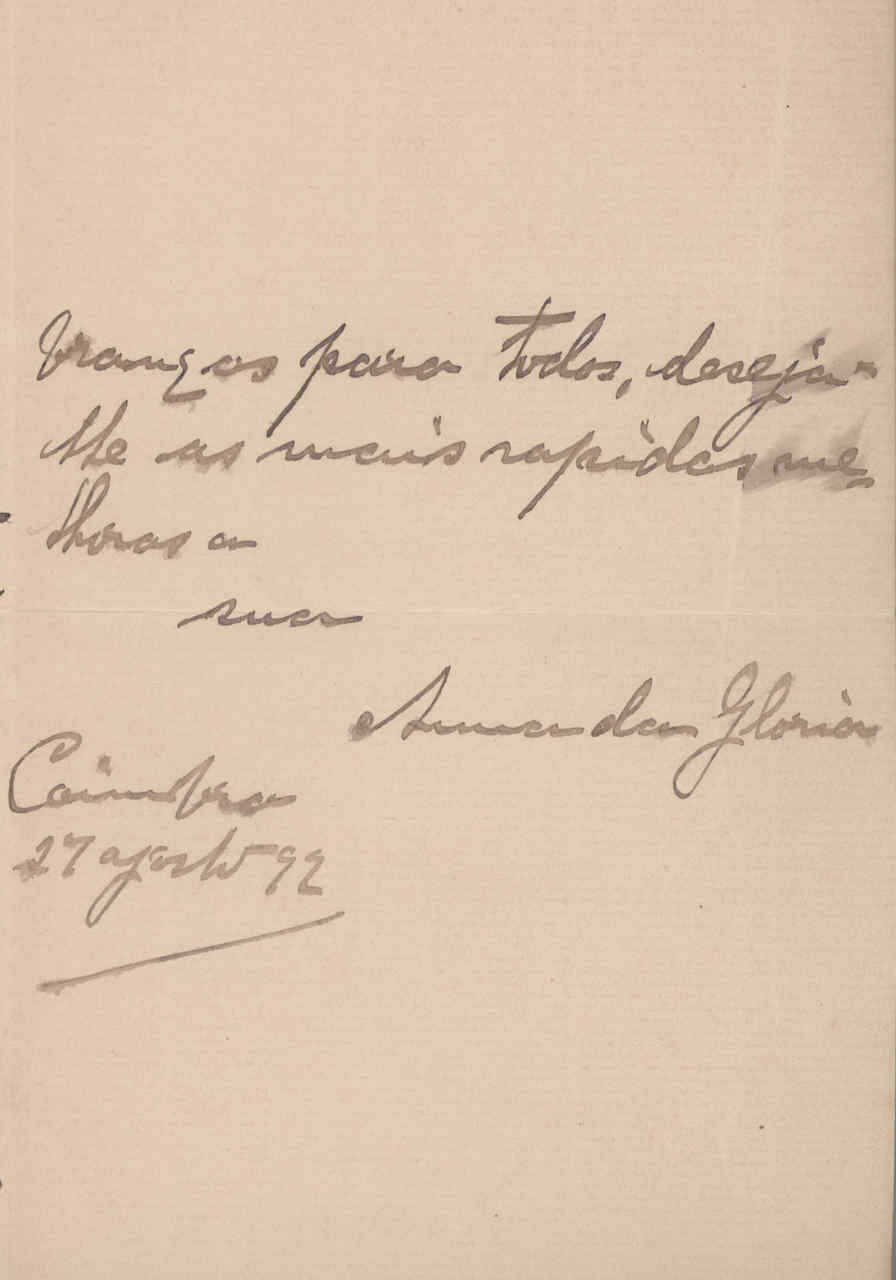 branças para todos, deseja-
lhe as mais rapidas me-
lhoras a
sua
Anna da Gloria
Coimbra
27 agosto 92